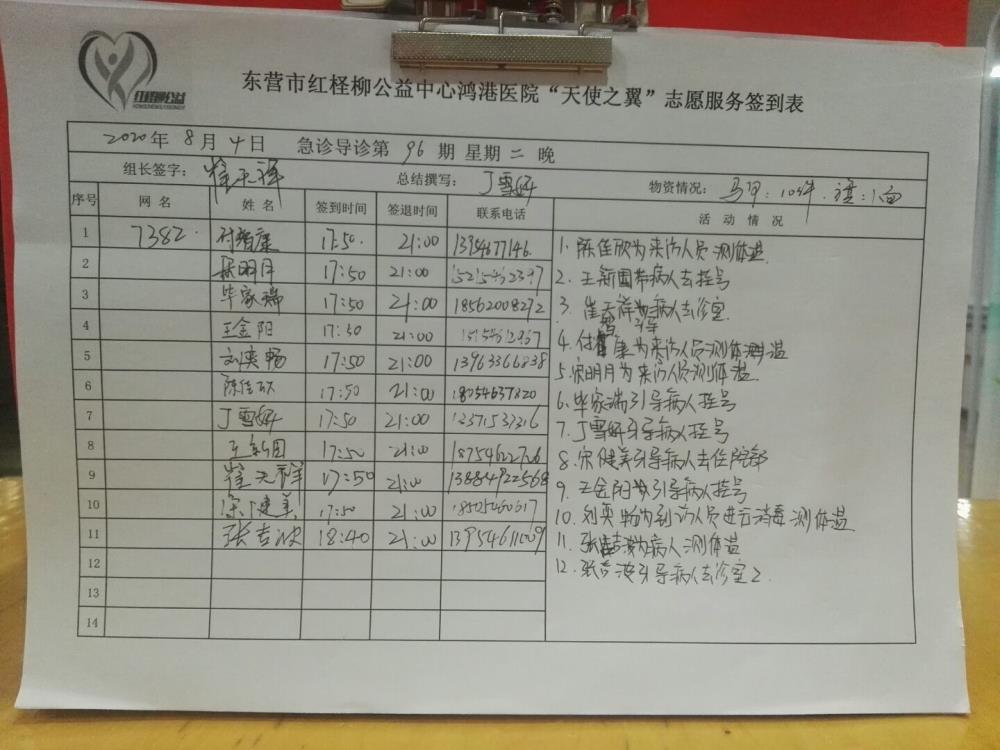 红柽柳公益
东营市红柽柳公益中心鸿港医院“天使之翼”志愿服务签到表
2020年 8月 4日 急诊导诊第 96 期 星期 二 晚
组长签字: 崔天祥 总结撰写: 丁雪妍 物资情况: 马甲:10件.旗:1面
序号 网名 姓名 签到时间 签退时间 联系电话 活动情况
1 7382 付智康 17:50 21:00
2 宋明月 17:50 21:00
3 毕家瑞 17:50 21:00 18562008272
4 王金阳 17:30 21:00
5 刘奕畅 17:50 21:00 13963366838
6 陈佳欣 17:50 21:00 18054637820
7 丁雪妍 17:50 21:00
8 王新团 17:50 21:00
9 崔天祥 17:50 21:00 13884922568
10 宋健美 17:50 21:00
11 张吉波 18:40 21:00 13954611009
12
13
14
1. 陈佳欣为来访人员测体温
2. 王新团带病人去挂号
3. 崔天祥为病人去诊室
4. 付智康为来访人员测体温
5. 宋明月为来访人员测体温
6. 毕家瑞引导病人挂号
7. 丁雪妍引导病人挂号
8. 宋健美引导病人去住院部
9. 王金阳引导病人挂号
10. 刘奕畅为到访人员进行消毒测体温
11. 张吉波为病人测体温
12. 张吉波引导病人去诊室2.